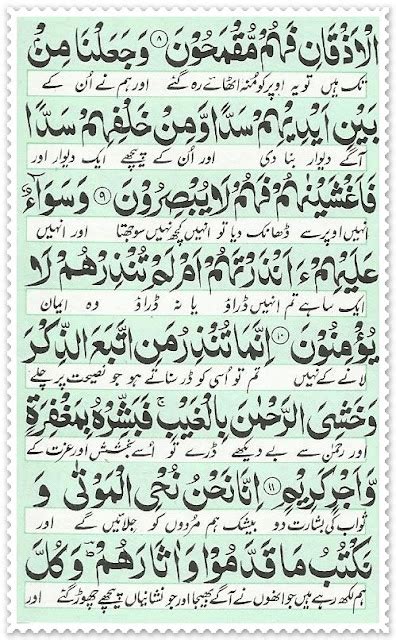 الْاَذْقَانِ فَهُمْ مُّقْمَحُوْنَ ۝۸ وَجَعَلْنَا مِنْۢ
تک ہیں تو یہ اوپر کو منہ اٹھائے رہ گئے اور ہم نے اُن کے
بَيْنِ اَيْدِيْهِمْ سَدًّا وَّمِنْ خَلْفِهِمْ سَدًّا
آگے دیوار بنا دی اور اُن کے پیچھے ایک دیوار اور
فَاَغْشَيْنٰهُمْ فَهُمْ لَا يُبْصِرُوْنَ ۝۹ وَسَوَآءٌ
انہیں اوپر سے ڈھانک دیا تو انہیں کچھ نہیں سوجھتا اور انہیں
عَلَيْهِمْ ءَاَنْذَرْتَهُمْ اَمْ لَمْ تُنْذِرْهُمْ لَا
ایک سا ہے تم انہیں ڈراؤ یا نہ ڈراؤ وہ ایمان
يُؤْمِنُوْنَ ۝۱۰ اِنَّمَا تُنْذِرُ مَنِ اتَّبَعَ الذِّكْرَ
لانے کے نہیں تم تو اُسی کو ڈر سناتے ہو جو نصیحت پر چلے
وَخَشِيَ الرَّحْمٰنَ بِالْغَيْبِ ۚ فَبَشِّرْهُ بِمَغْفِرَةٍ
اور رحمٰن سے بے دیکھے ڈرے تو اُسے بخشش اور عزت کے
وَّاَجْرٍ كَرِيْمٍ ۝۱۱ اِنَّا نَحْنُ نُحْيِ الْمَوْتٰى وَ
ثواب کی بشارت دو بیشک ہم مُردوں کو جِلائیں گے اور
نَكْتُبُ مَا قَدَّمُوْا وَاٰثَارَهُمْ ؕ وَكُلَّ
ہم لکھ رہے ہیں جو انھوں نے آگے بھیجا اور جو نشانیاں پیچھے چھوڑ گئے اور